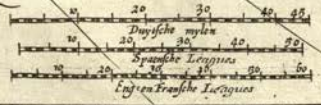 10 20 30 40 45
Duytsche mylen
10 20 30 40 50
Spaensche Leagues
10 20 30 40 50 60
Eng: en Fransche Leagues